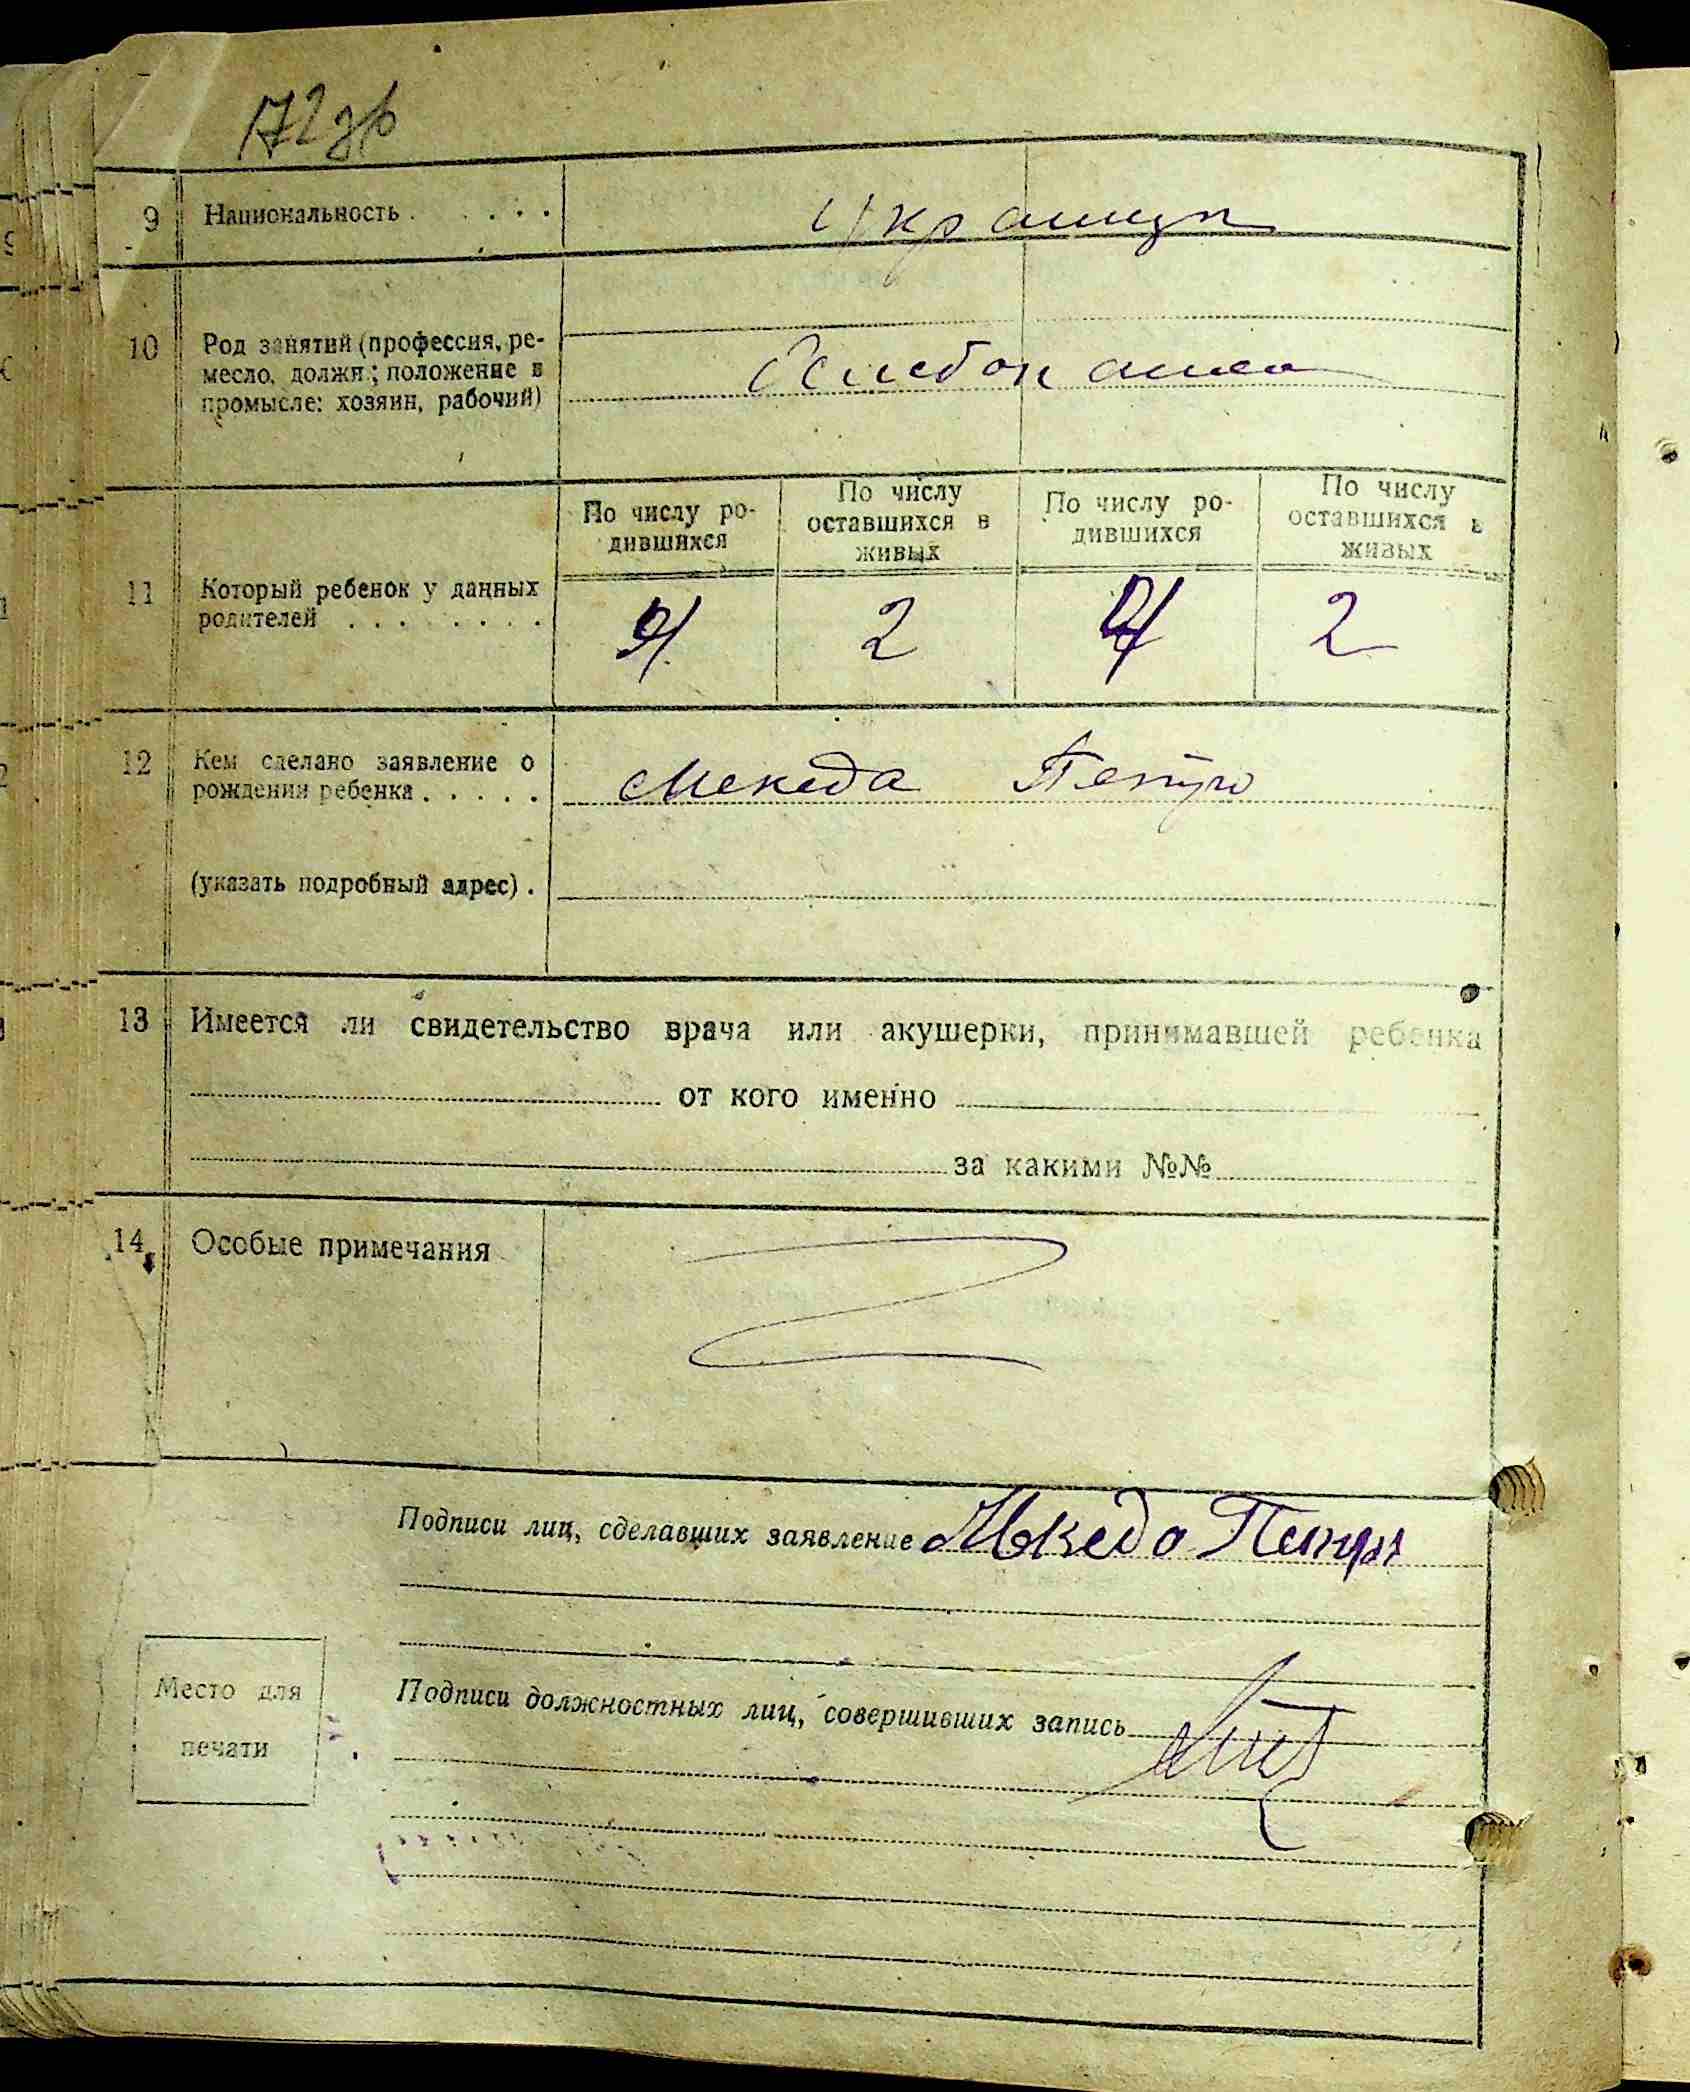 172зв
9 Национальность . . . . . Украинцы
10 Род занятий (профессия, ре-
месло, должн.; положение в
промысле: хозяин, рабочий)
Хлебопашец
По числу ро-
дившихся
По числу
оставшихся в
живых
По числу ро-
дившихся
По числу
оставшихся в
живых
11 Который ребенок у данных
родителей . . . . . . . .
4 2 4 2
12 Кем сделано заявление о
рождении ребенка . . . . .
Мекеда Петро
(указать подробный адрес) .
13 Имеется ли свидетельство врача или акушерки, принимавшей ребенка
от кого именно
за какими №№
14 Особые примечания
Подписи лиц, сделавших заявление Мкедо Петро
Место для
печати
Подписи должностных лиц, совершивших запись